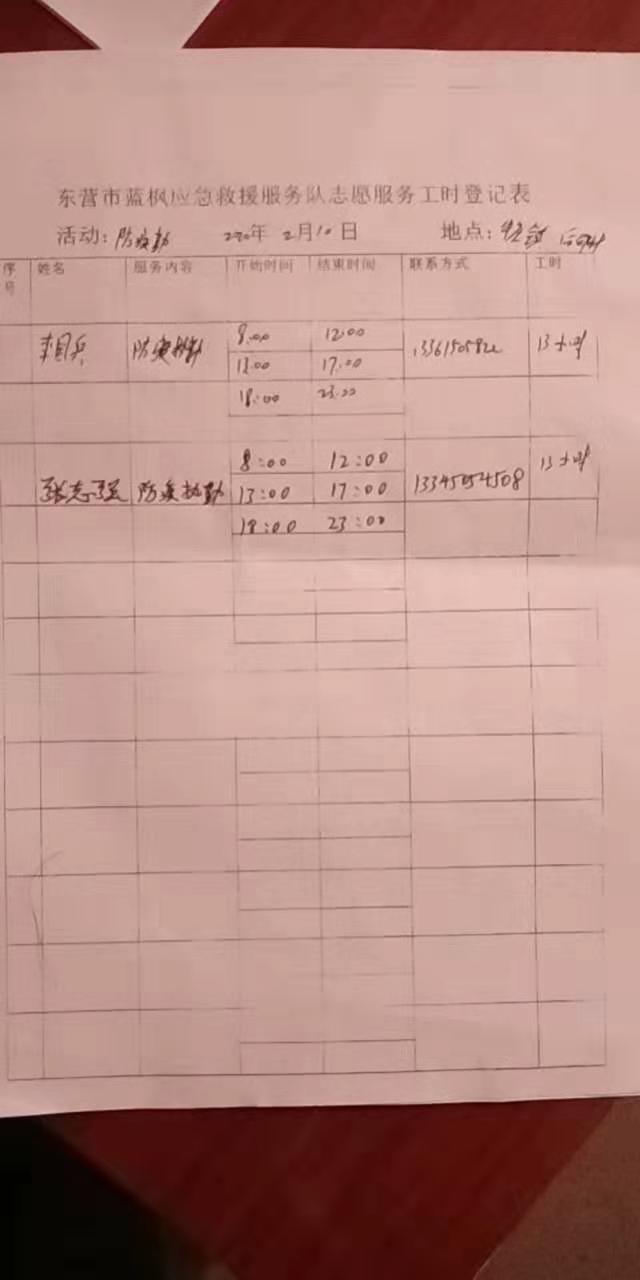 东营市蓝枫应急救援服务队志愿服务工时登记表
活动：防疫执勤 2020年 2月10日 地点：
序号 姓名 服务内容 开始时间 结束时间 联系方式 工时
防疫执勤 8:00 12:00 13小时
13:00 17:00
18:00 23:00
张志强 防疫执勤 8:00 12:00 13345054508 13小时
13:00 17:00
18:00 23:00